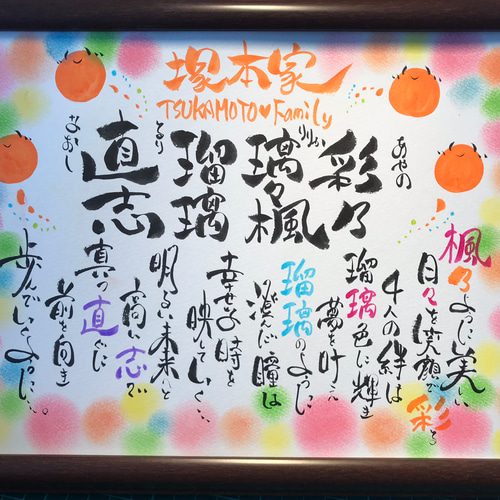 塚本家
TSUKAMOTO♥Family
あやの
彩乃
りりか
璃々楓
るり
瑠璃
なおし
直志
楓乃ように美しい
日々を笑顔で彩る
4人の絆は
瑠璃色に輝き
夢を叶え
瑠璃のように
澄んだ瞳は
幸せな時を
映していく…
明るい未来と
高い志で
真っ直ぐに
前を向き
歩んでいくように…。